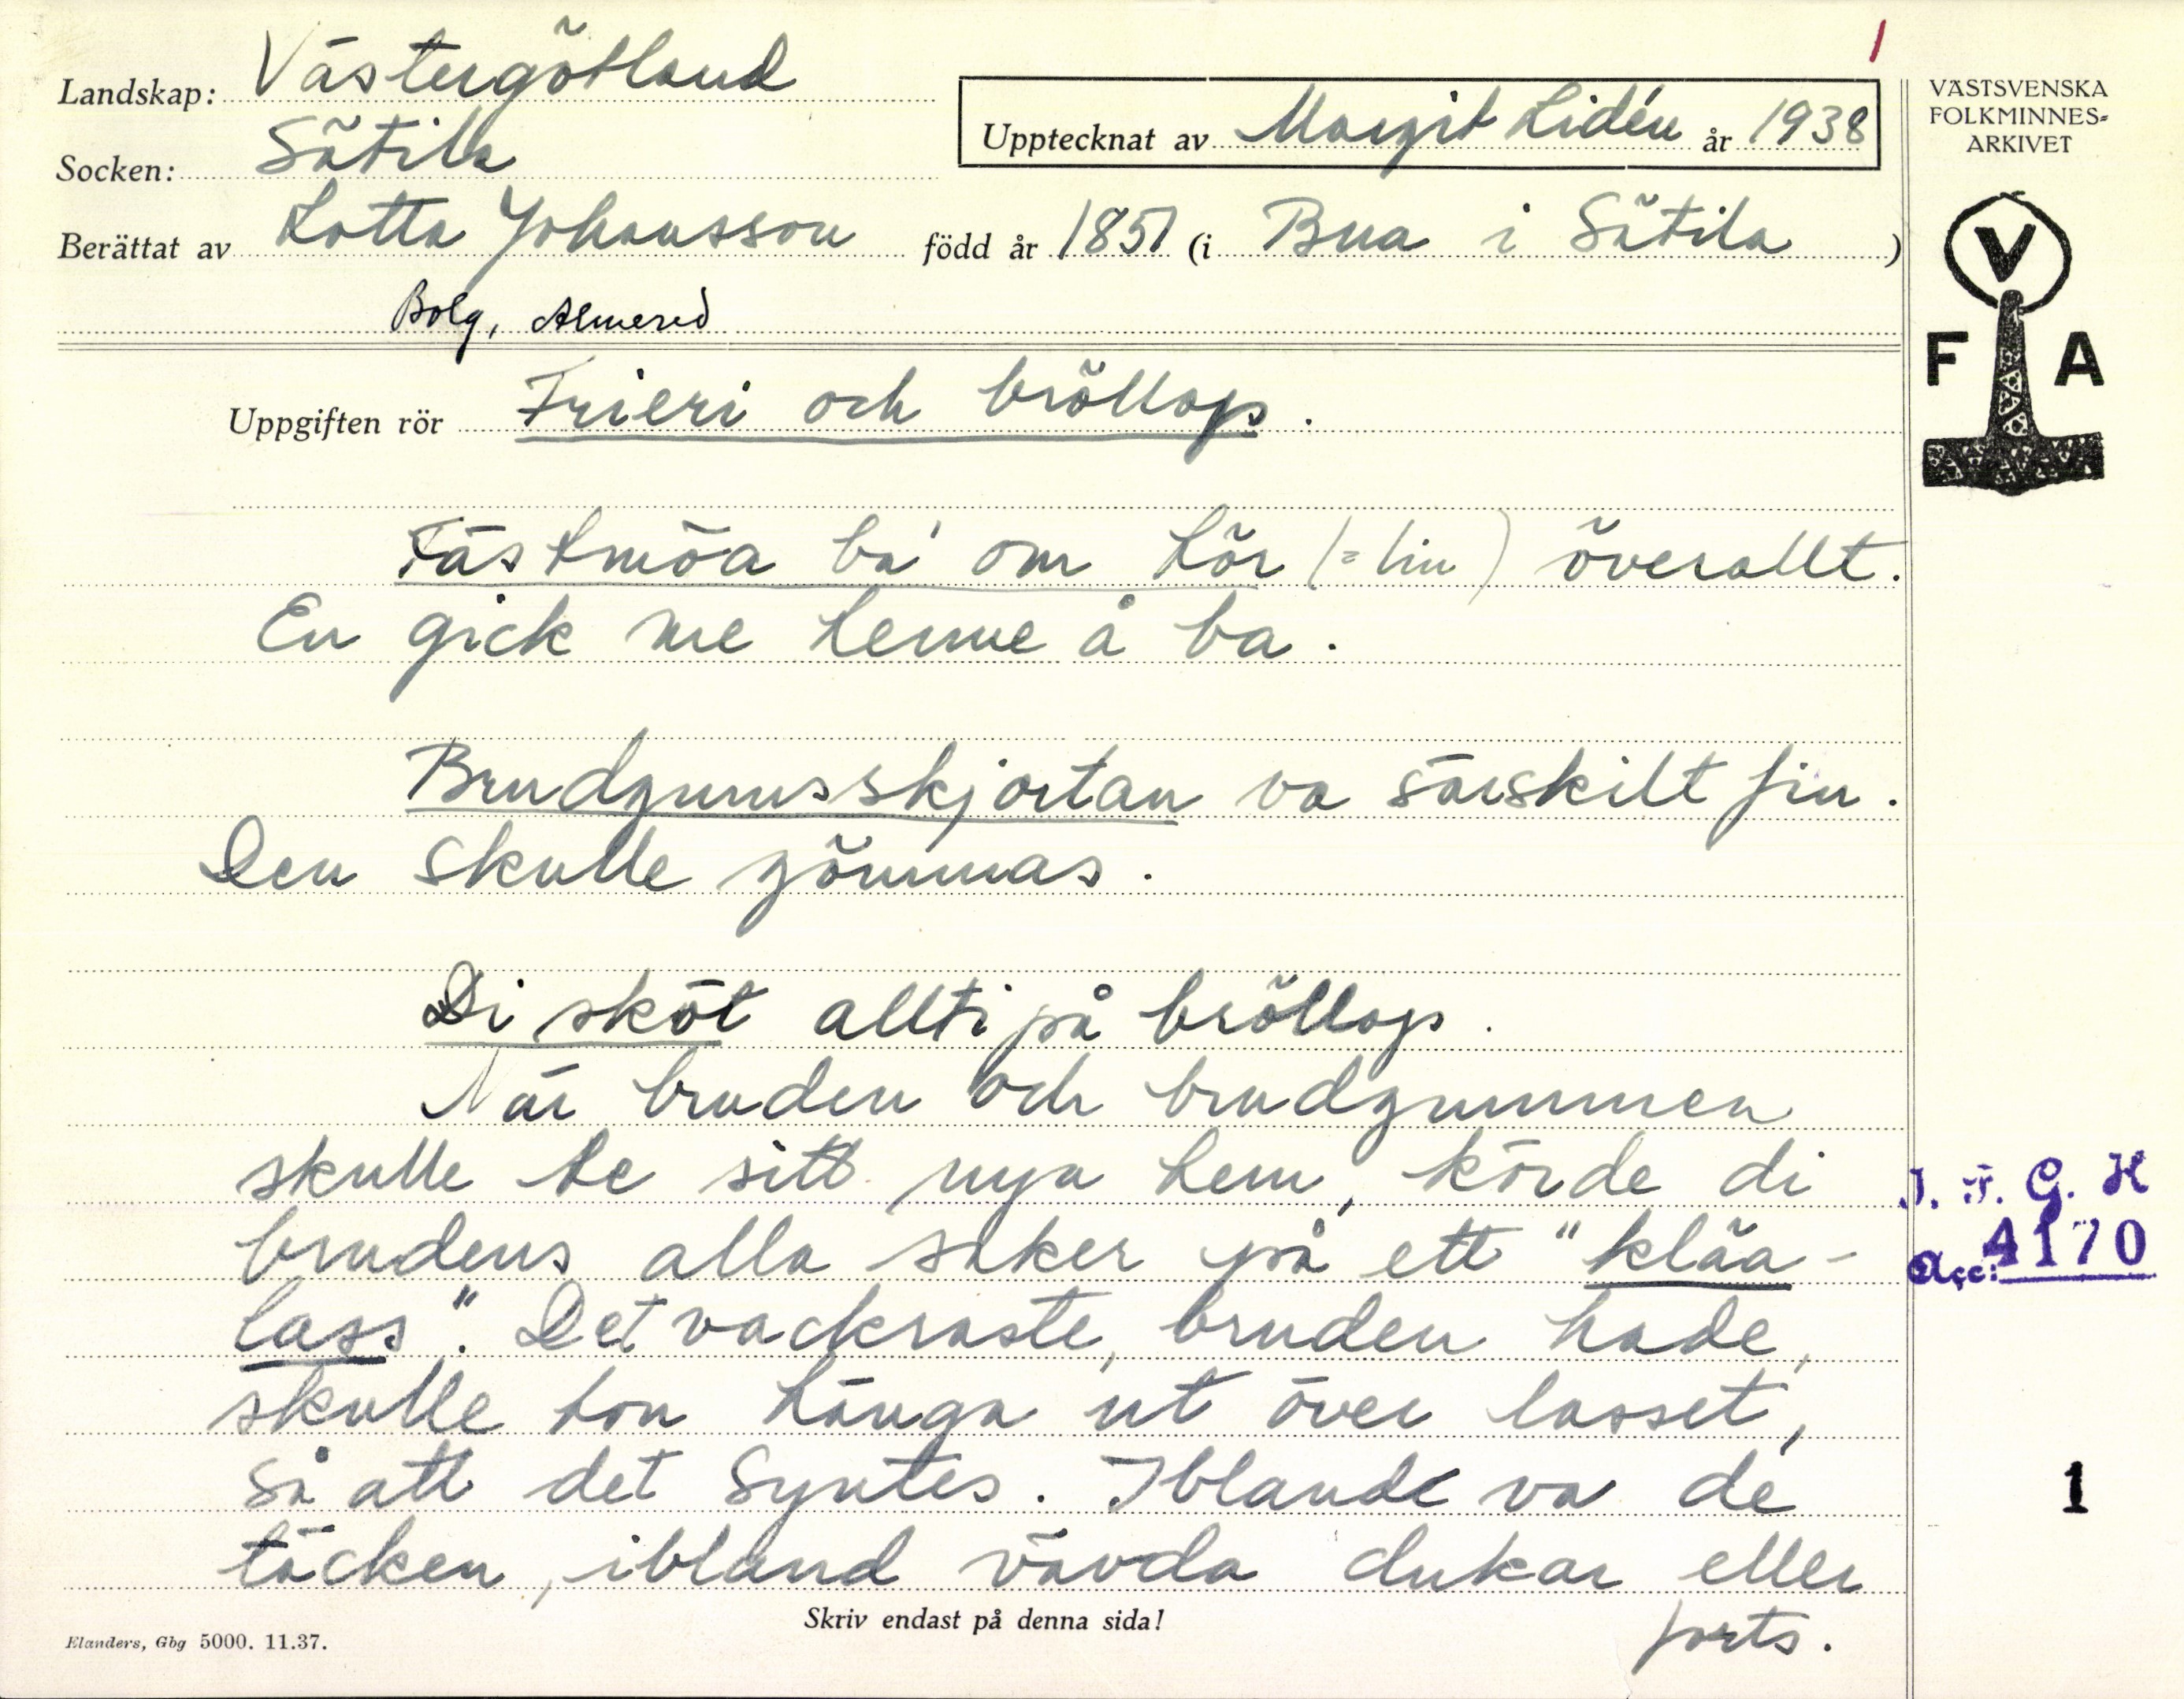 1
Landskap: Västergötland
VÄSTSVENSKA
FOLKMINNES=
ARKIVET
Upptecknat av Margit Lidén år 1938
Socken: Sätila
Berättat av Lotta Johansson född år 1857 (i Bua i Sätila )
Bolg, Almered
V
F A
Uppgiften rör Frieri och bröllop.
Fästmöa ba' om hör (= lin) överallt.
En gick me henne å ba.
Brudgumsskjortan va särskilt fin.
Den skulle gömmas.
Di sköt allti på bröllop.
När bruden och brudgummen
skulle te sitt nya hem, körde di
brudens alla saker på ett "kläa-
lass". Det vackraste, bruden hade,
skulle hon hänga ut över lasset,
så att det syntes. Iblande va de
täcken, ibland vävda dukar eller
forts.
I. F. G. H
Acc: 4170
1
Skriv endast på denna sida!
Elanders, Gbg 5000. 11.37.